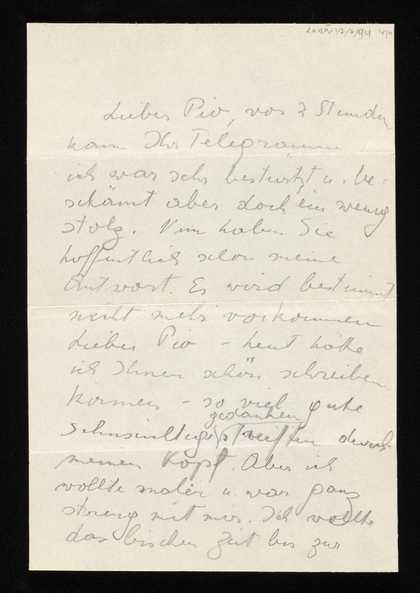 Lieber Pio, vor 2 Stunden
kam Ihr Telegramm
ich war sehr bestürzt u. be-
schämt aber doch ein wenig
stolz. Nun haben Sie
hoffentlich schon meine
Antwort. Es wird bestimmt
nicht mehr vorkommen
Lieber Pio – heut hätte
ich Ihnen schön schreiben
können – so viel gute
gedanken
sehnsüchtige streiften durch
meinen Kopf. Aber ich
wollte malen u. war ganz
streng mit mir. Ich wollte
das bischen Zeit bis zur